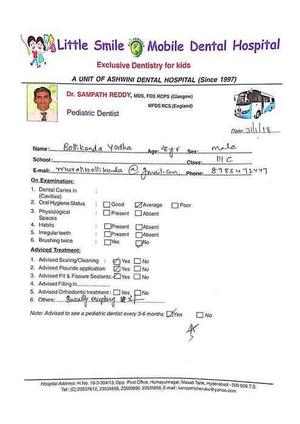 Little Smile Mobile Dental Hospital
Exclusive Dentistry for kids
A UNIT OF ASHWINI DENTAL HOSPITAL (Since 1997)
Dr. SAMPATH REDDY, MDS, FDS RCPS (Glasgow)
MFDS RCS (England)
Pediatric Dentist
Date: 31/1/18
Name: Bollikonda Yatha Age: 8yr Sex: male
School: Class: III C
E-mail: muralibollikonda@gmail.com Phone:
On Examination:
1. Dental Caries in :
(Cavities)
2. Oral Hygiene Status : Good Average Poor
3. Physiological : Present Absent
Spaces
4. Habits : Present Absent
5. Irregular teeth : Present Absent
6. Brushing twice : Yes No
Adviced Treatment:
1. Advised Scaling/Cleaning : Yes No
2. Advised Flouride application: Yes No
3. Advised Pit & Fissure Sealants: Yes No
4. Advised Filling in
5. Advised Orthodontic treatment : Yes No
6. Others:
Note: Advised to see a pediatric dentist every 3-6 months Yes No
Hospital Address: H.No. 10-3-304/13, Opp. Post Office, Humayunnagar, Masab Tank, Hyderabad - 500 028.T.S.
Tel: (C) 23537612, 23535656, 23550690, 23530358, E-mail: sampathcheruku@yahoo.com